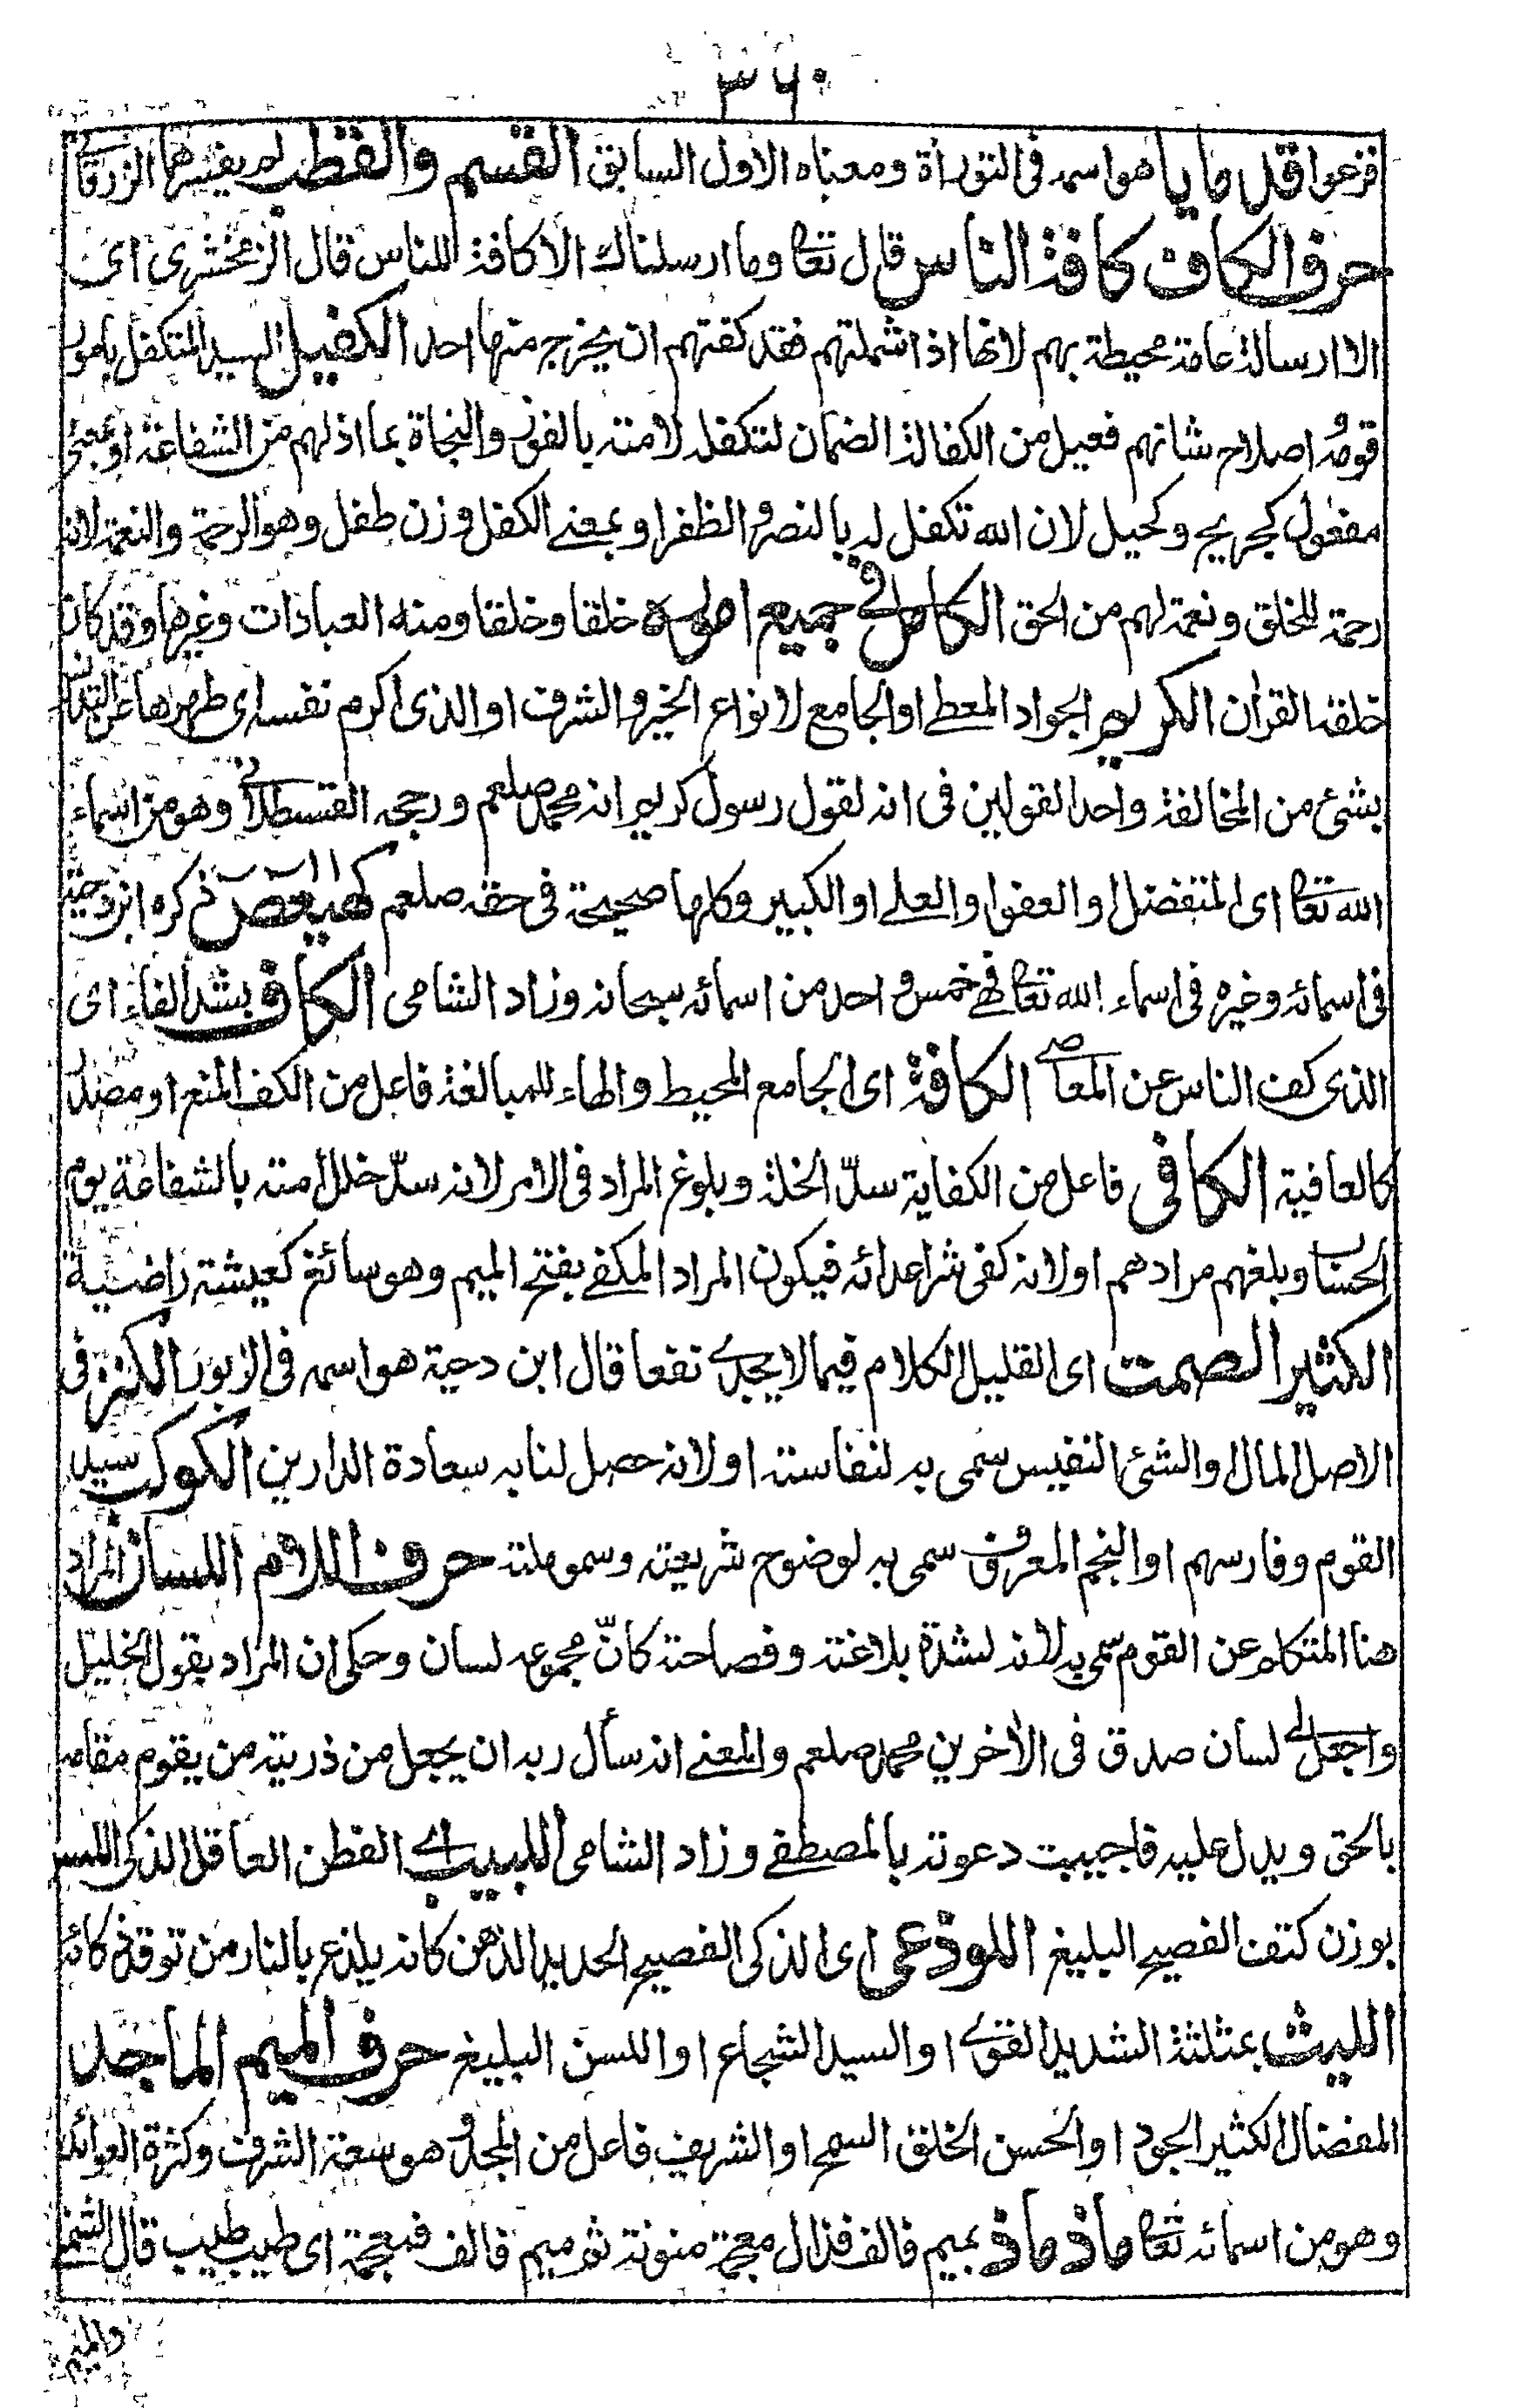 ٣٦٠
فزعوا قدمايا هو اسمه فى التوراة ومعناه الاول السابق القسيم والقطب لم يفسرها الزرقانى
حرف الكاف كافة الناس قال تعالى وما ارسلناك الا كافة للناس قال الزمخشرى اى
الا ارسالة عامة محيطة بهم لانها اذا شملتهم فقد كفتهم ان يخرج منها احد الكفيل السيد المتكفل بامور
قومه واصلاح شانهم فعيل من الكفالة الضمان لتكفله لامته بالفوز والنجاة بما اذلهم من الشفاعة او بمعنى
مفعول كجريح وكحيل لان الله تكفل له بالنصر والظفر او بمعنى الكفل وزن طفل وهو الرحمة والنعمة لانه
رحمة للخلق ونعمة لهم من الحق الكامل فى جميع اموره خلقا وخلقا ومنه العبادات وغيرها وقد كان
خلقه القران الكريم الجواد المعطى او الجامع لانواع الخير والشرف او الذى اكرم نفسه اى طهرها عن التدنس
بشئ من المخالفة واحد القولين فى انه لقول رسول كريم انه محمد صلعم ورجحه القسطلانى وهو من اسماء
الله تعالى اى المتفضل او العفو او العلى او الكبير وكلها صحيحة فى حقه صلعم كهيعص ذكره ابن دحية
فى اسمائه وغيره فى اسماء الله تعالى فهى خمس واحد من اسمائه سبحانه وزاد الشامى الكاف بشد الفاء اى
الذى كف الناس عن المعاصى الكافة اى الجامع المحيط والهاء للمبالغة فاعل من الكف المنع او مصدر
كالعافية الكافى فاعل من الكفاية سدّ الخلة وبلوغ المراد فى الامر لانه سدّ خلل امته بالشفاعة يوم
الحساب وبلغهم مرادهم او لانه كفى شر اعدائه فيكون المراد المكفى بفتح الميم وهو سائغ كعيشة راضية
الكثير الصمت اى القليل الكلام فيما لا يجدى نفعا قال ابن دحية هو اسمه فى الزبور الكنز فى
الاصل المال او الشئ النفيس سمى به لنفاسته او لانه حصل لنا به سعادة الدارين الكوكب سيد
القوم وفارسهم او النجم المعروف سمى به لوضوح شريعته وسمو ملته حرف اللام اللسان المراد
هنا المتكلم عن القوم سمى به لانه لشدة بلاغته وفصاحته كانّ مجموعه لسان وحكى ان المراد بقول الخليل
واجعل لى لسان صدق فى الاٰخرين محمد صلعم والمعنى انه سأل ربه ان يجعل من ذريته من يقوم مقامه
بالحق ويدل عليه فاجيبت دعوته بالمصطفى وزاد الشامى اللبيب اى الفطن العاقل الذكى اللسن
بوزن كتف الفصيح البليغ اللوذعى اى الذكى الفصيح الحديد الذهن كانه يلذع بالنار من توقد ذكائه
الليث بمثلثة الشديد القوى او السيد الشجاع او اللسن البليغ حرف الميم الماجد
المفضال الكثير الجود او الحسن الخلق السمح او الشريف فاعل من المجد وهو سعة الشرف وكثرة العوائد
وهو من اسمائه تعالى ماذ ماذ بميم فالف فذال معجمة منونة ثم ميم فالف فمعجمة اى طيب طيب قال الشمنى
والميم